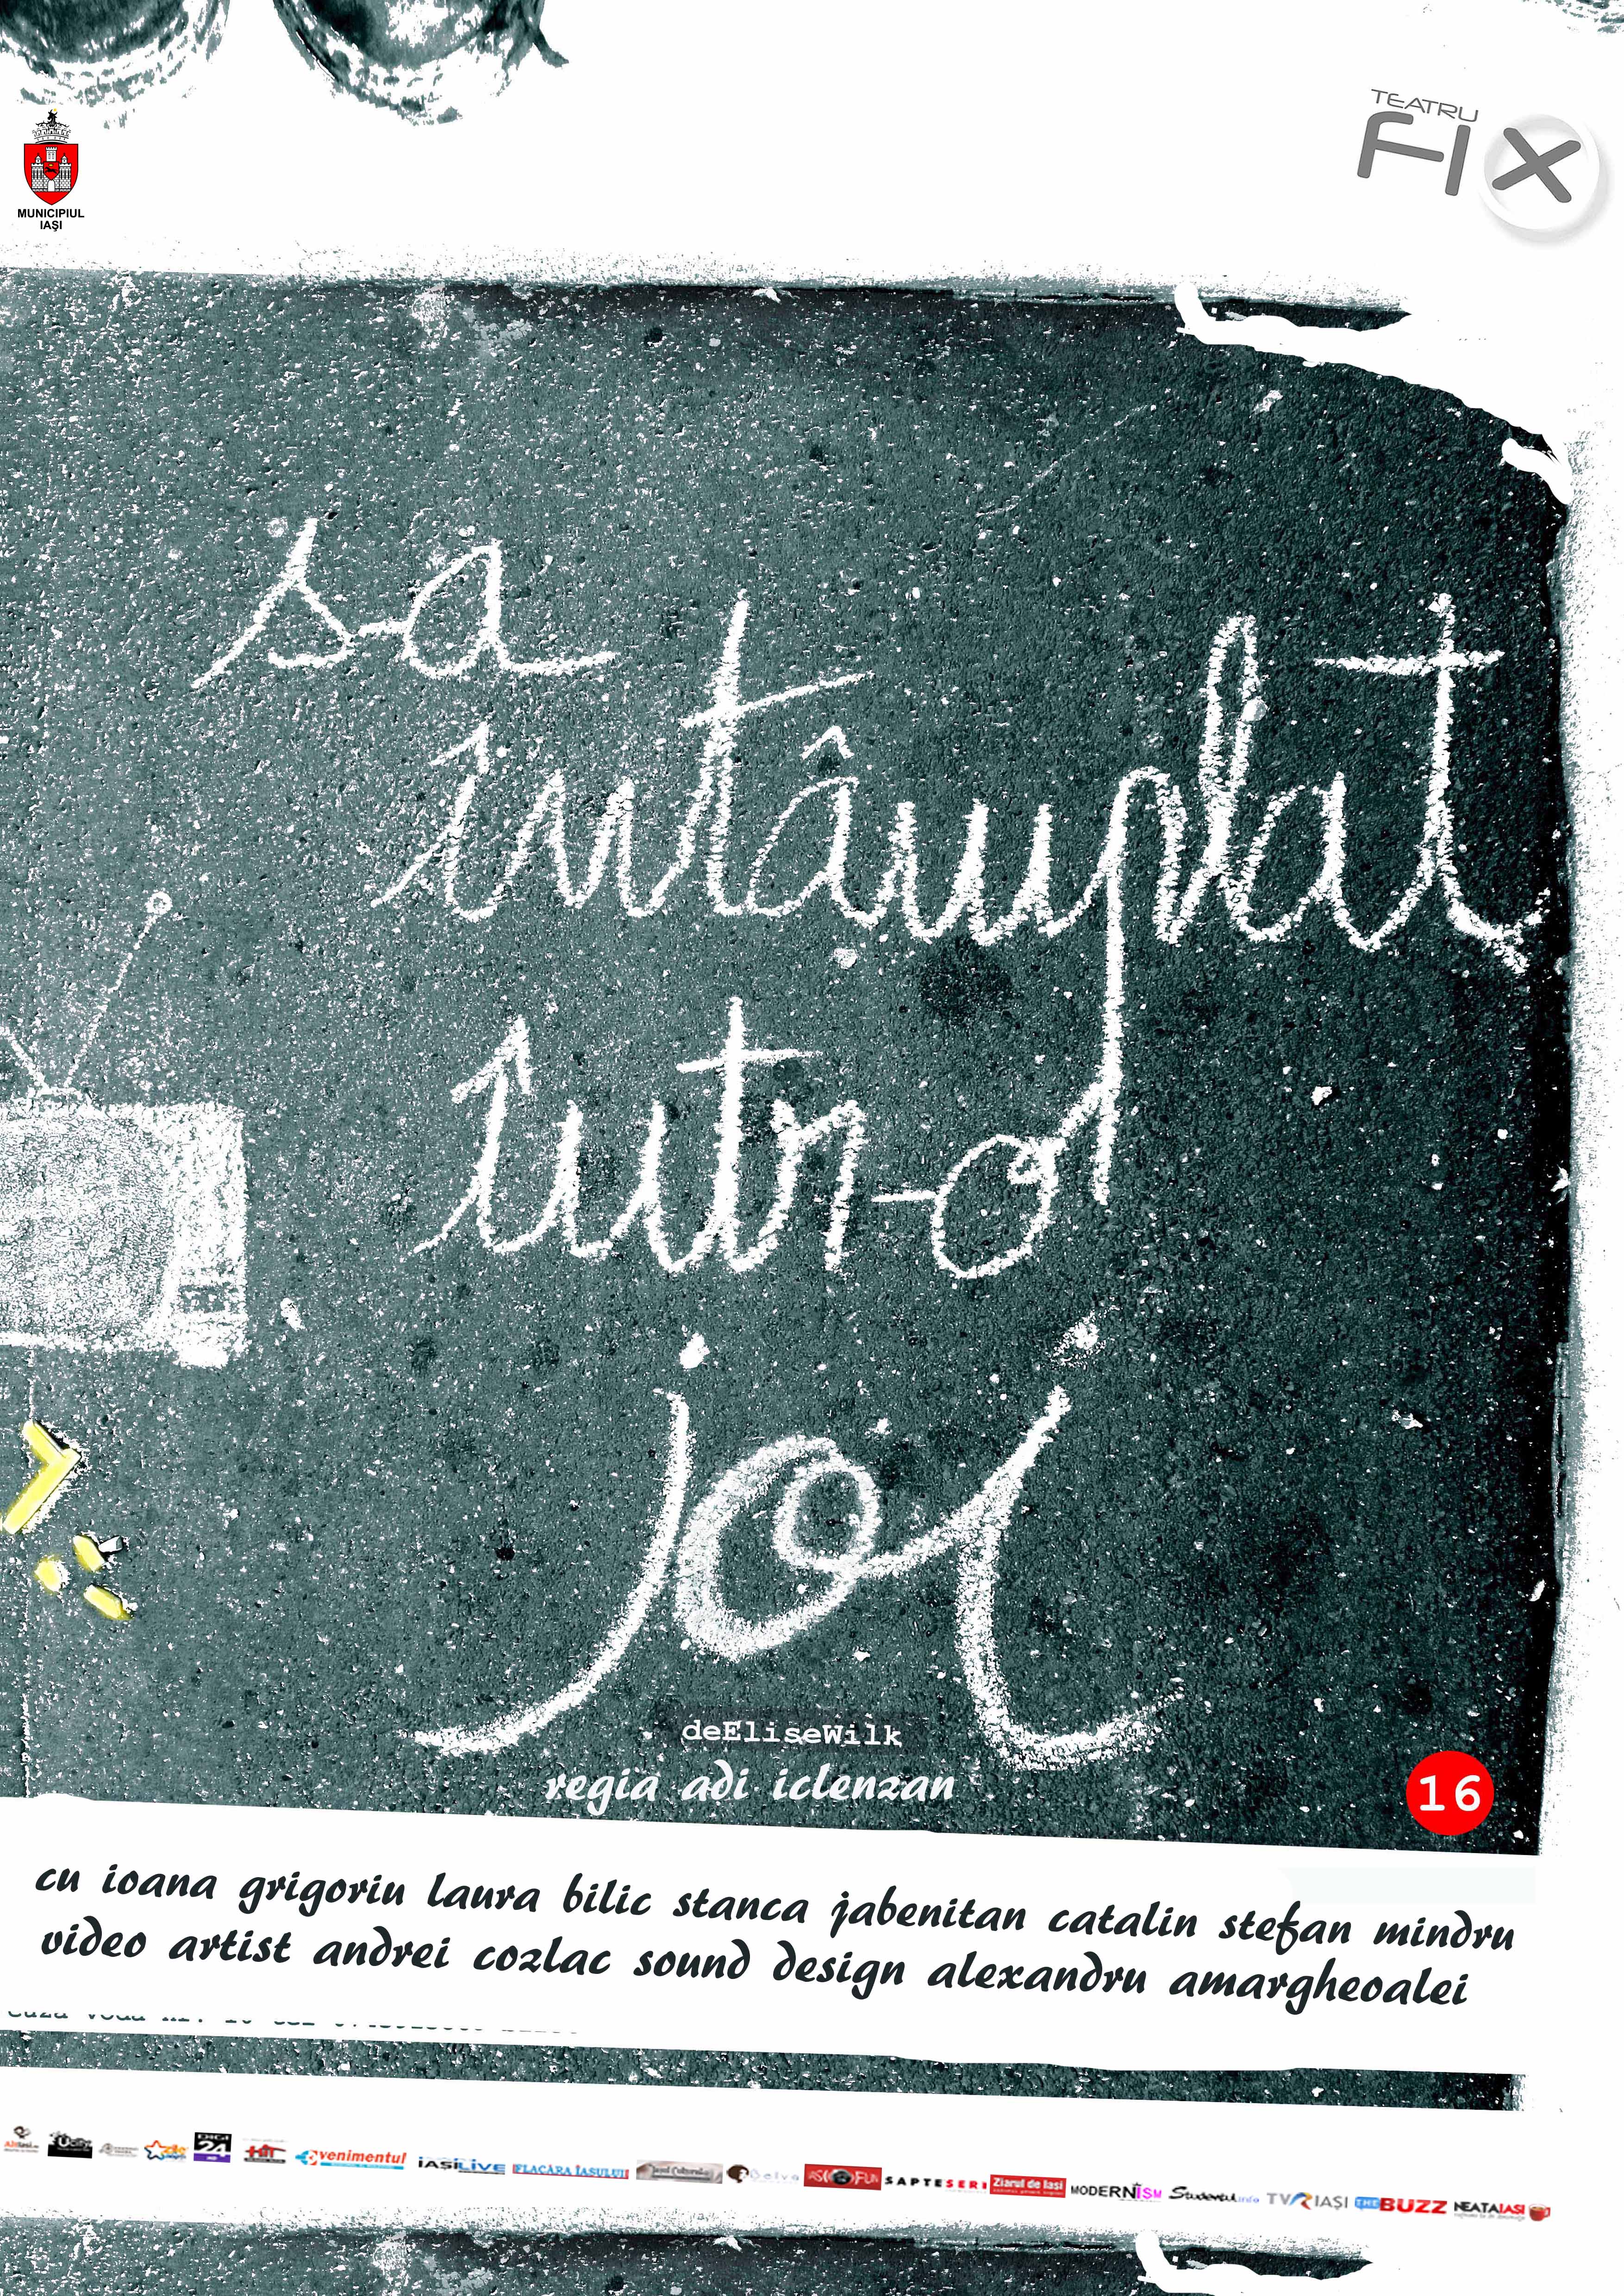 MUNICIPIUL
IAŞI
TEATRU
FIX
s-a
întâmplat
într-o
joi
deEliseWilk
regia adi iclenzan
16
cu ioana grigoriu laura bilic stanca jabenitan catalin stefan mindru
video artist andrei cozlac sound design alexandru amargheoalei
DIGI 24 HIT evenimentul IAȘILIVE FLACĂRA IAȘULUI Iașul Cultural Delva IASIFUN SAPTESERI Ziarul de Iasi MODERNISM Studentul.info TVR IAȘI THE BUZZ NEATAIASI